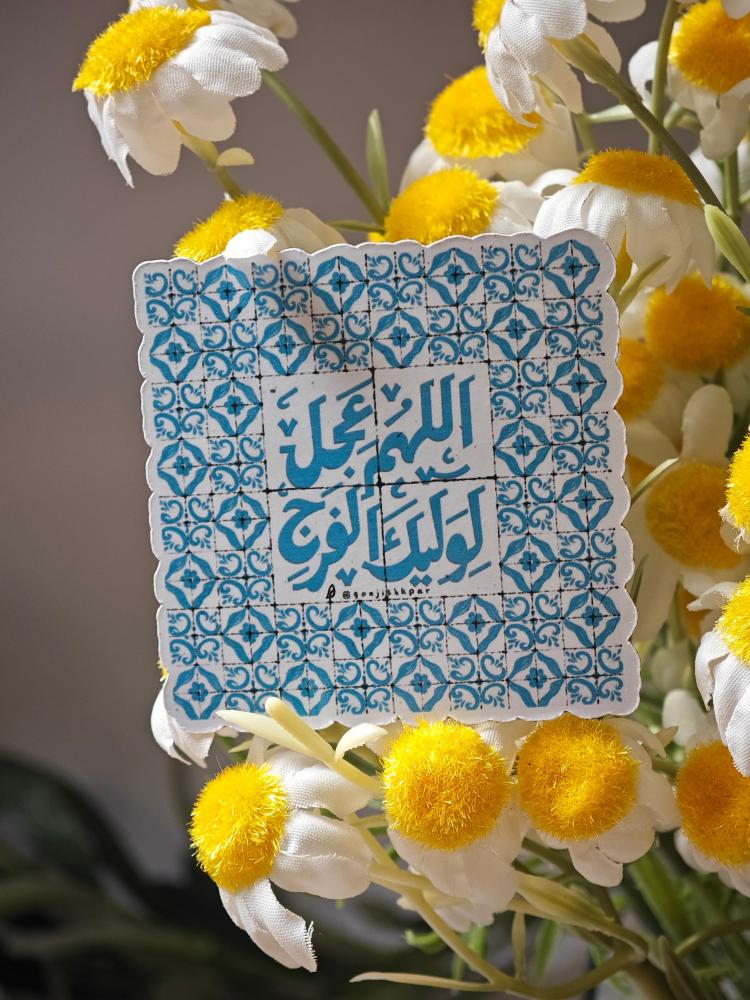 اللهم عجل
لوليك الفرج
@gonjishkpar